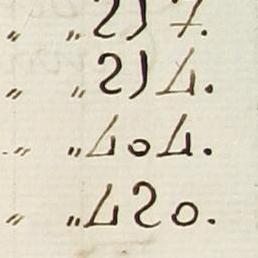 " " 217.
" " 214.
" " 404.
" " 420.